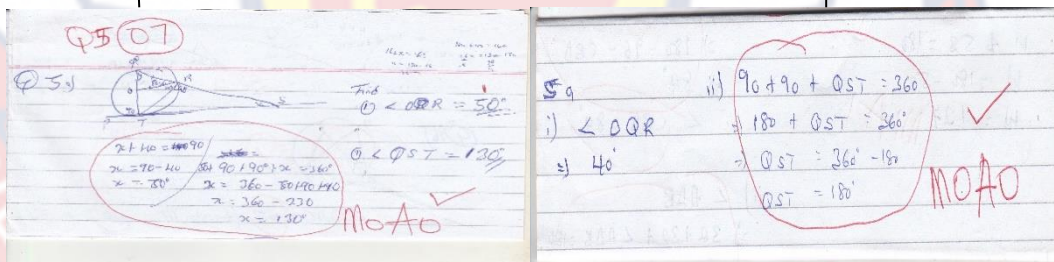 Q5 07
Q 5a)
Find
① < OQR = 50°
x + 40 = 90
x = 90 - 40
x = 50°
50 + 90 + 90° + x = 360°
x = 360 - 50+90+90
x = 360 - 230
x = 130°
ii) < QST = 130°
M0A0
5 a
i) < OQR
⇒ 40°
ii) 90 + 90 + QST = 360
⇒ 180 + QST = 360°
⇒ QST = 360° - 180
QST = 180°
M0A0